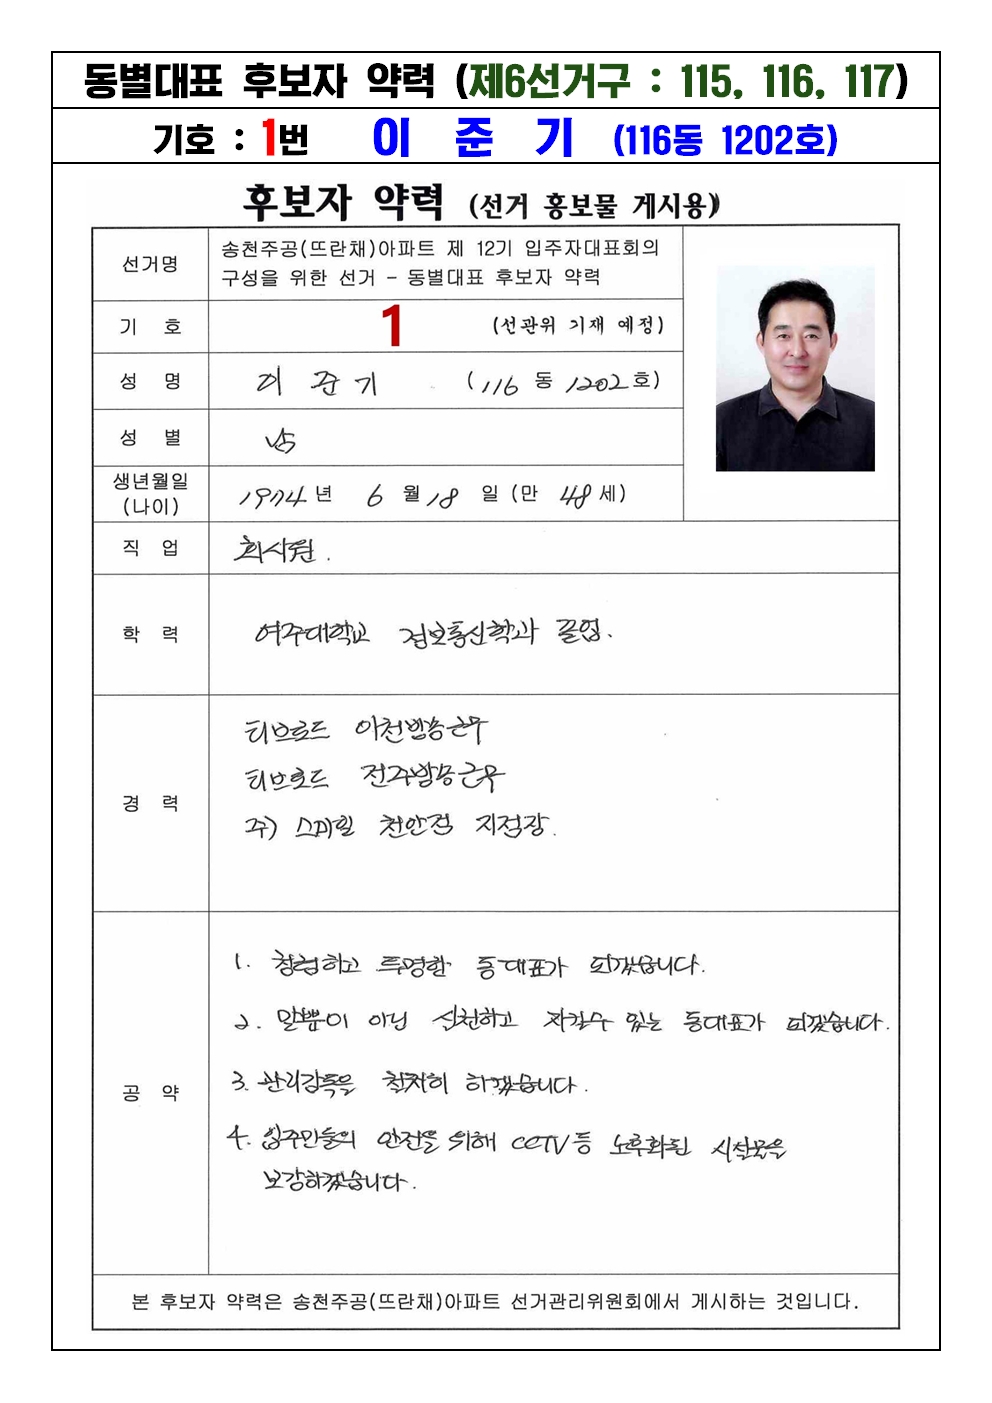 동별대표 후보자 약력 (제6선거구 : 115, 116, 117)
기호 : 1번 이 준 기 (116동 1202호)
후보자 약력 (선거 홍보물 게시용)
선거명
송천주공(뜨란채)아파트 제 12기 입주자대표회의
구성을 위한 선거 - 동별대표 후보자 약력
기 호 1 (선관위 기재 예정)
성 명 이 준 기 (116 동 1202호)
성 별 남
생년월일
(나이)
1974년 6월 18일 (만 48세)
직 업 회사원.
학 력 여주대학교 정보통신학과 졸업.
경 력
티브로드 이천방송근무
티브로드 전주방송근무
주) 스마일 천안점 지점장.
공 약
1. 청렴하고 투명한 동대표가 되겠습니다.
2. 말뿐이 아닌 실천하고 자랄수 있는 동대표가 되겠습니다.
3. 관리감독을 철저히 하겠습니다.
4. 입주민들의 안전을 위해 CCTV등 노후화된 시설물을
보강하겠습니다.
본 후보자 약력은 송천주공(뜨란채)아파트 선거관리위원회에서 게시하는 것입니다.